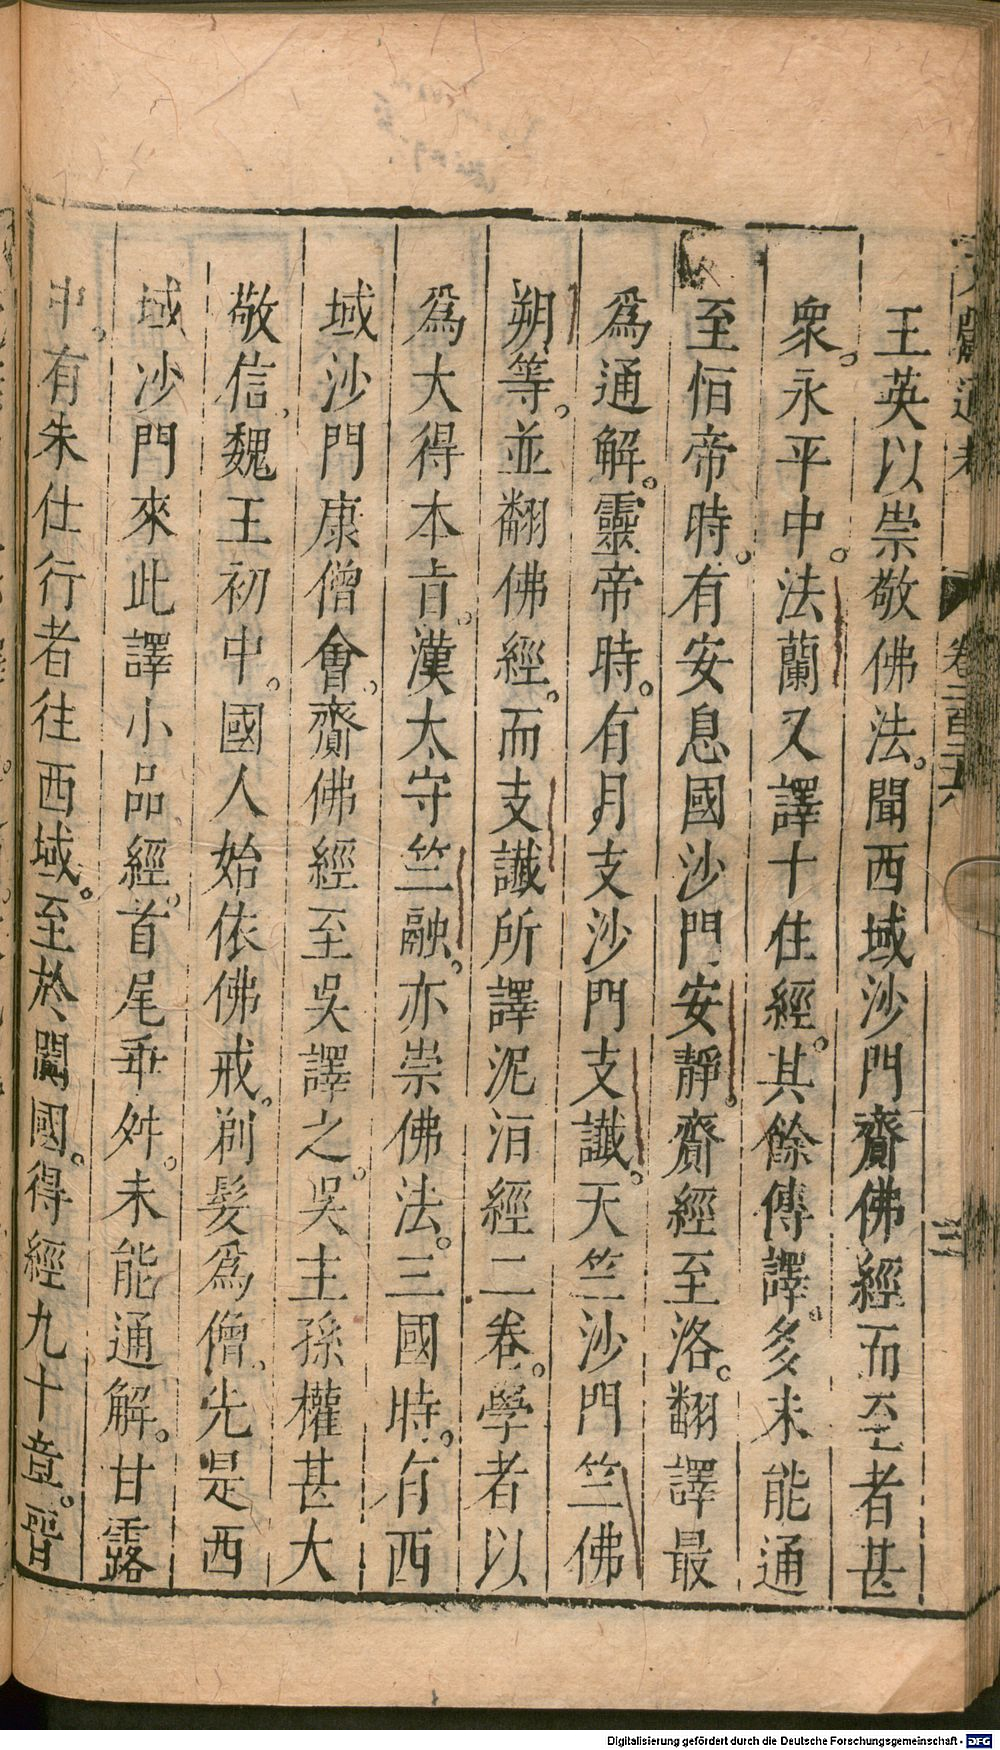 王英以崇敬佛法。聞西域沙門齎佛經而至者甚
衆。永平中。法蘭又譯十住經。其餘傳譯。多未能通
至恒帝時。有安息國沙門安靜。齎經至洛。翻譯最
爲通解。靈帝時。有月支沙門支讖。天竺沙門竺佛
朔等。並翻佛經。而支讖所譯泥洹經二卷。學者以
爲大得本㫖。漢太守竺融。亦崇佛法。三國時。有西
域沙門康僧會。齎佛經至吳譯之。吳主孫權甚大
敬信。魏王初中。國人始依佛戒。剃髮爲僧。先是西
域沙門來此譯小品經。首尾乖舛。未能通解。甘露
中。有朱仕行者往西域。至於闐國。得經九十章。晉
卷二百二十六
三
Digitalisierung gefördert durch die Deutsche Forschungsgemeinschaft - DFG